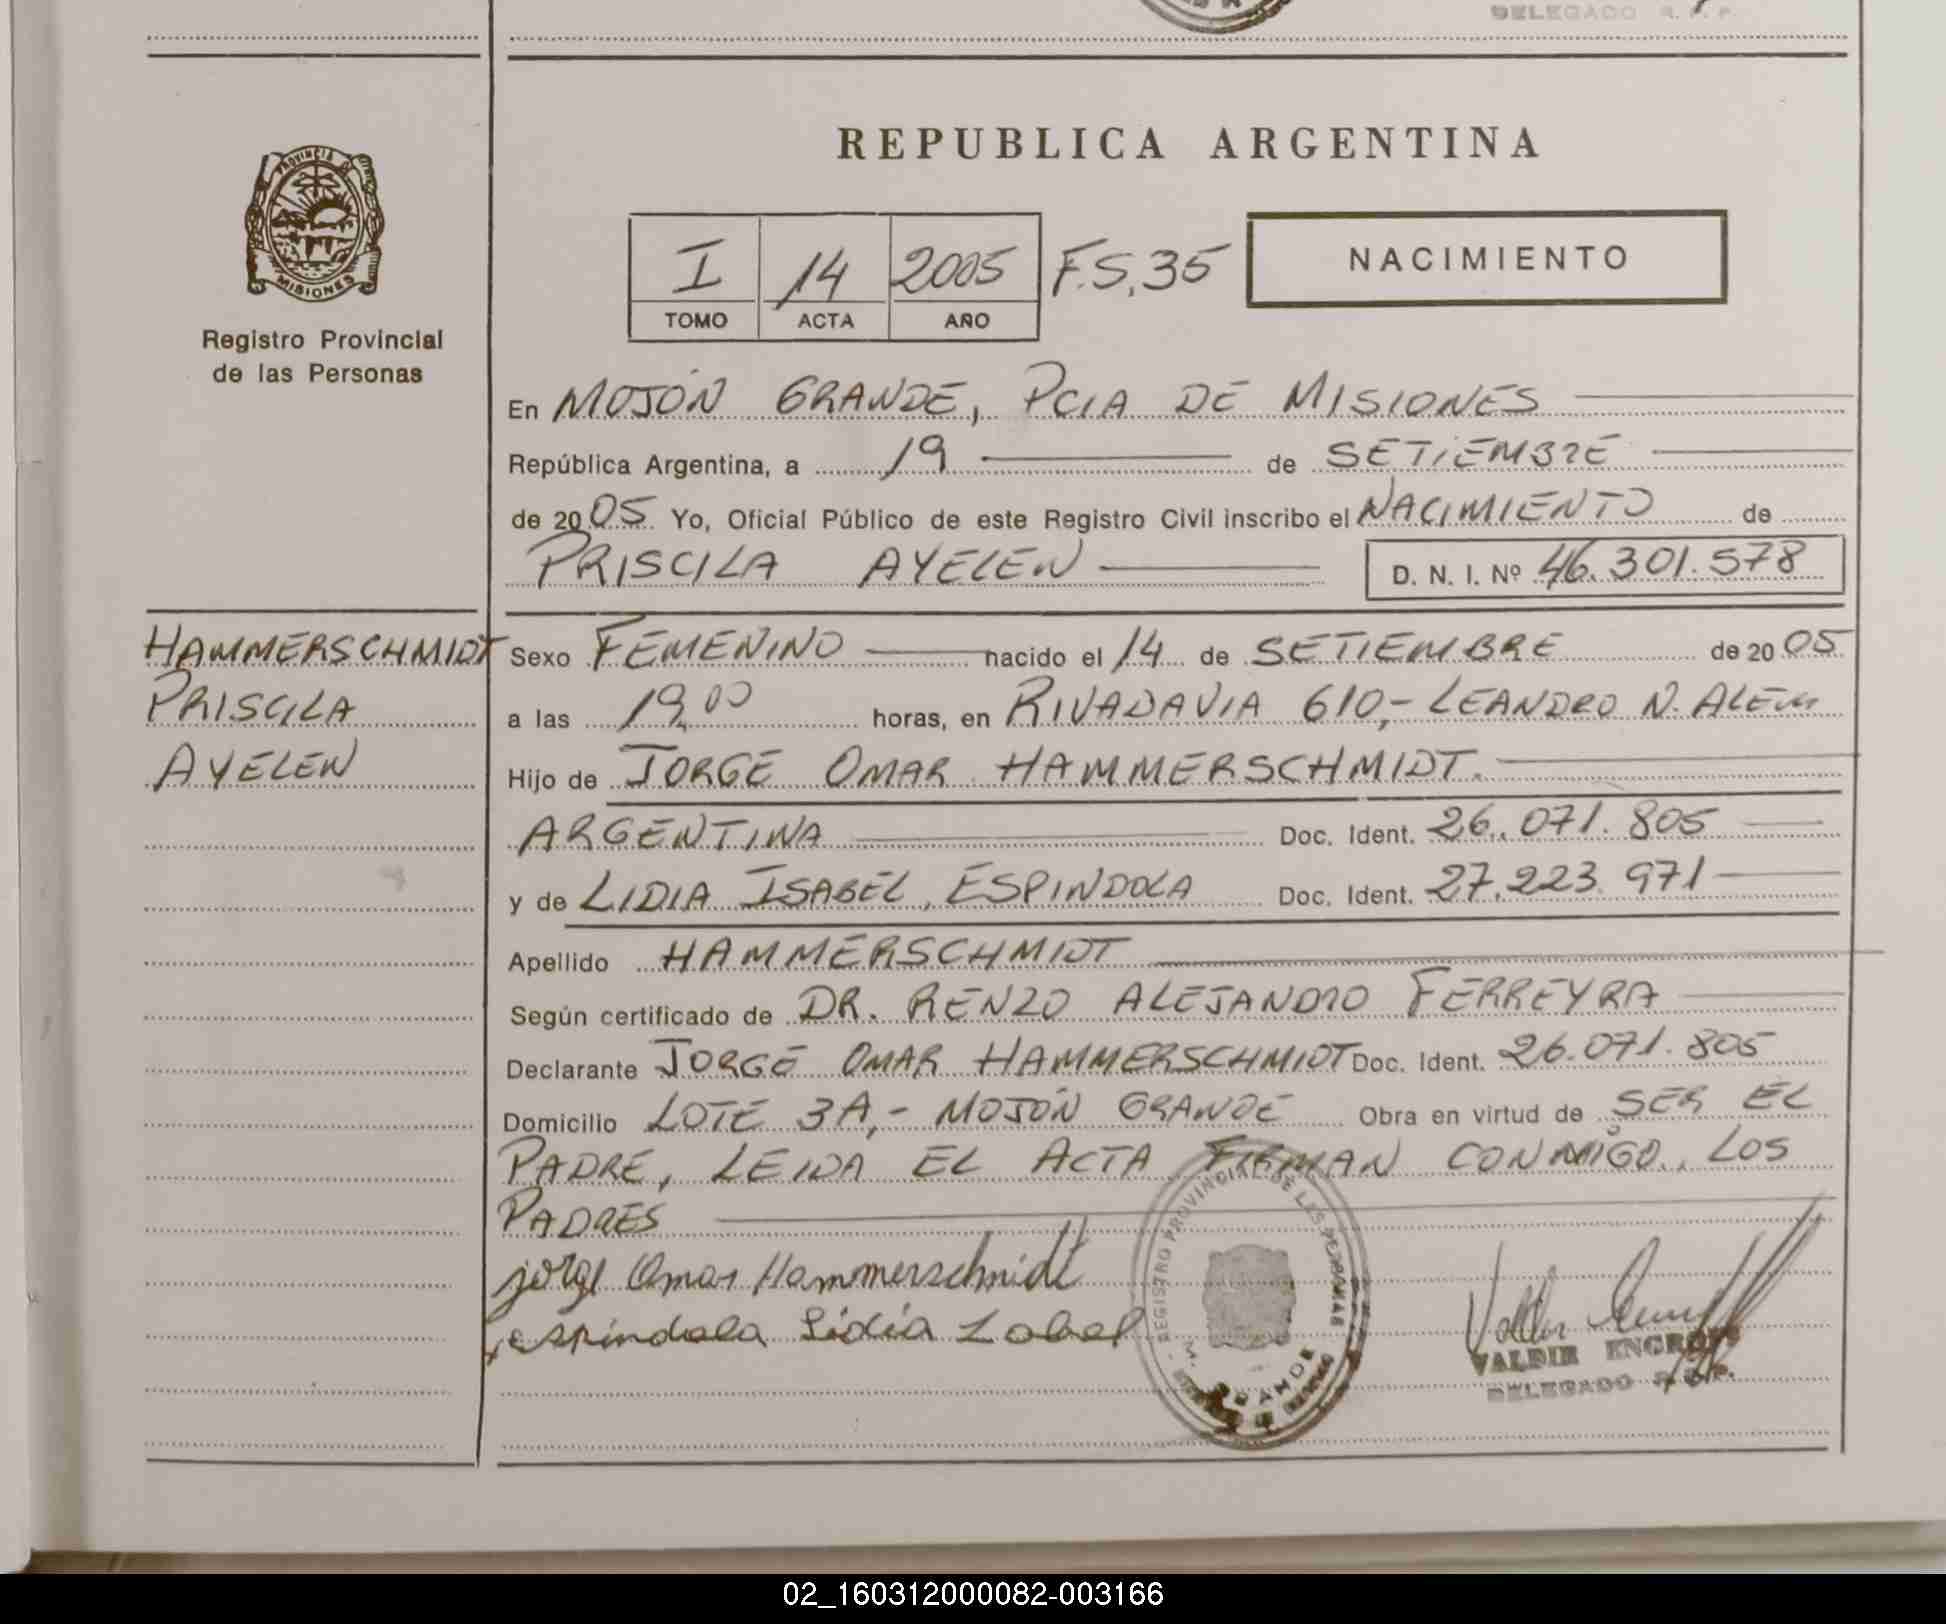 DELEGADO R. P. P.
PROVINCIA DE
MISIONES
Registro Provincial
de las Personas
REPUBLICA ARGENTINA
I 14 2005 F.S.35
TOMO ACTA AÑO
NACIMIENTO
En MOJÓN GRANDE, PCIA DE MISIONES
República Argentina, a 19 de SETIEMBRE
de 2005 Yo, Oficial Público de este Registro Civil inscribo el NACIMIENTO de
PRISCILA AYELEN D. N. I. Nº 46.301.578
HAMMERSCHMIDT
PRISCILA
AYELEN
Sexo FEMENINO nacido el 14 de SETIEMBRE de 2005
a las 19,00 horas, en RIVADAVIA 610,- LEANDRO N. ALEM
Hijo de JORGE OMAR HAMMERSCHMIDT.
ARGENTINA Doc. Ident. 26.071.805
y de LIDIA ISABEL, ESPINDOLA Doc. Ident. 27.223.971
Apellido HAMMERSCHMIDT
Según certificado de DR. RENZO ALEJANDRO FERREYRA
Declarante JORGE OMAR HAMMERSCHMIDT Doc. Ident. 26.071.805
Domicilio LOTE 3A,- MOJÓN GRANDE Obra en virtud de SER EL
PADRE, LEIDA EL ACTA FIRMAN CONMIGO, LOS
PADRES
jorge Omar Hammerschmidt
espindola Lidia Isabel
REGISTRO PROVINCIAL DE LAS PERSONAS
M. GRANDE
VALDIR ENGROFF
DELEGADO R. P. P.
02_160312000082-003166